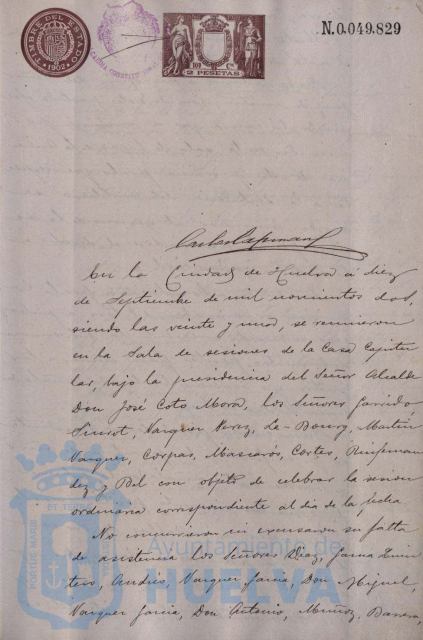 TIMBRE DEL ESTADO
1902
2 PESETAS
N.0.049.829
En la Ciudad de Huelva á diez
de Septiembre de mil novecientos dos,
siendo las veinte y una, se reunieron
en la Sala de sesiones de la Casa Capitu
lar, bajo la presidencia del Señor Alcalde
Don José Coto Mora, los Señores Garrido
Vazquez Perez, La-Bourg, Martin
Vazquez, Corpas, Mascarós, Cortes,
dez y Bel con objeto de celebrar la sesion
ordinaria correspondiente al dia de la fecha
No concurrieron ni excusaron su falta
de asistencia los Señores Diaz, Garcia Quin
tero, Andres, Vazquez Garcia, Don Miguel,
Vazquez Garcia, Don Antonio, Muñoz,
PORTUS MARIS ET TE
Ayuntamiento de
HUELVA